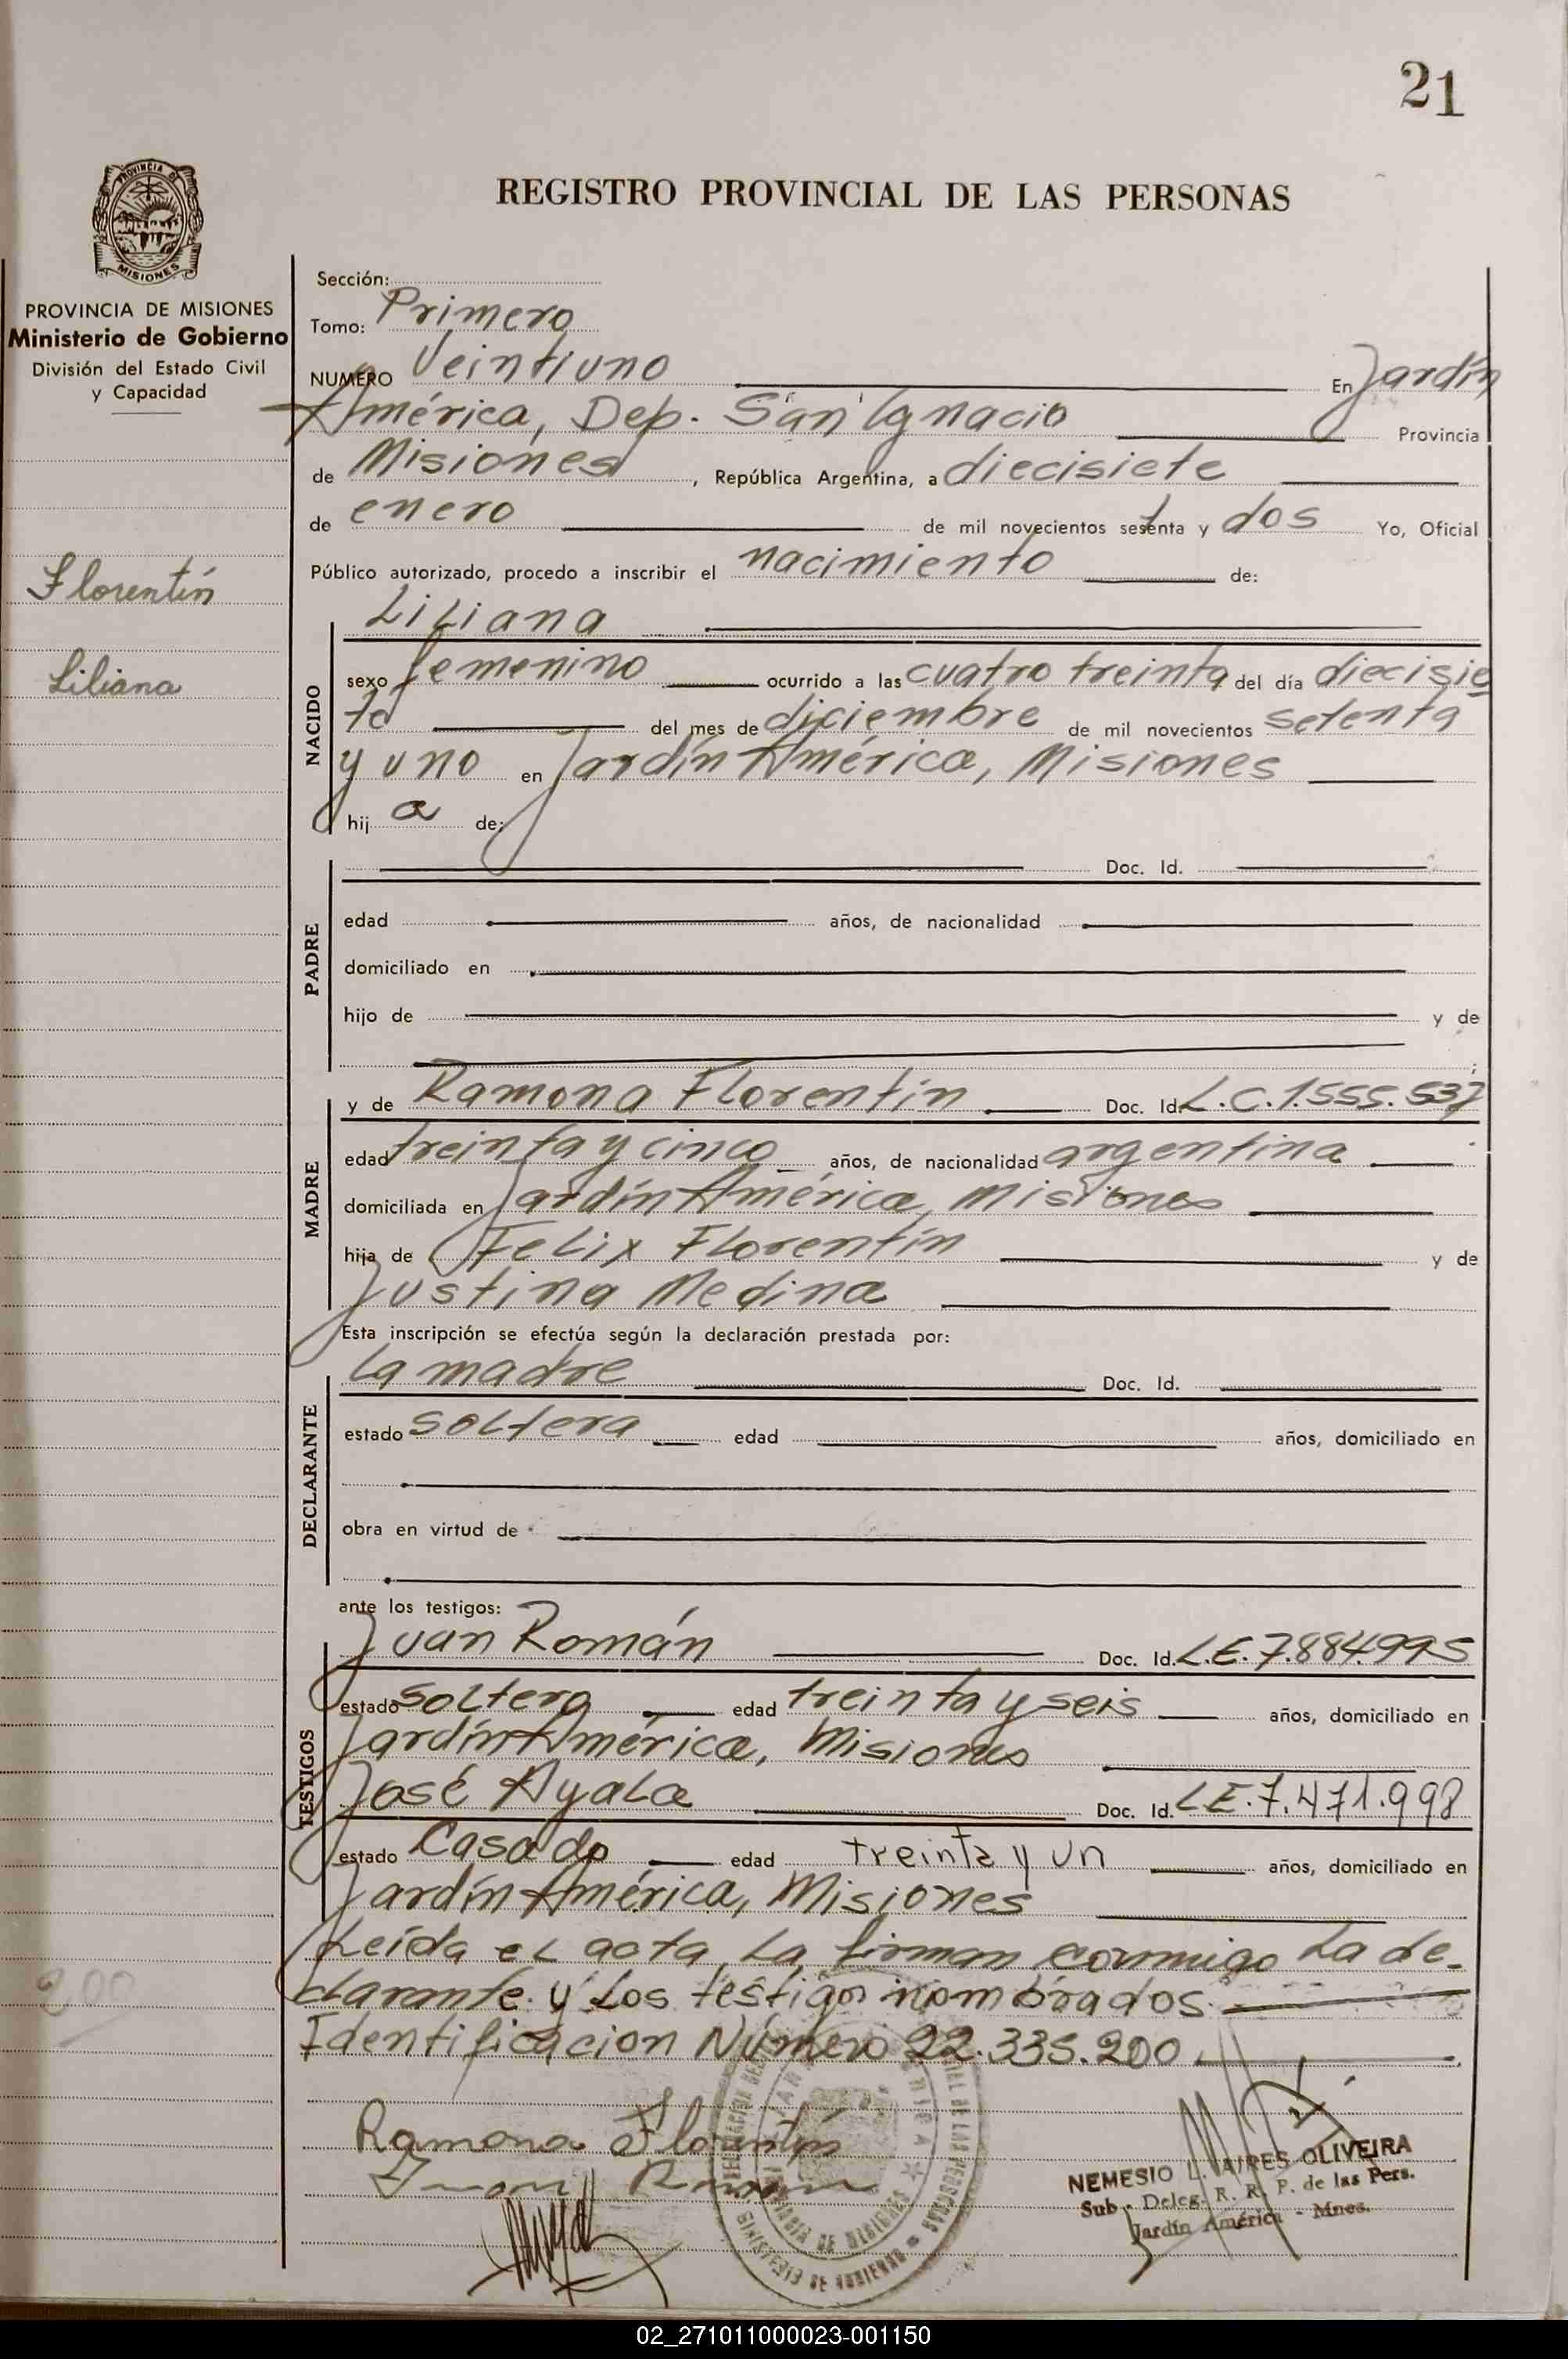 21
REGISTRO PROVINCIAL DE LAS PERSONAS
PROVINCIA DE MISIONES
PROVINCIA DE MISIONES
Ministerio de Gobierno
División del Estado Civil
y Capacidad
Florentín
Liliana
Sección:
Tomo: Primero
NUMERO Veintiuno En Jardín
América, Dep. San Ignacio Provincia
de Misiones, República Argentina, a diecisiete
de enero de mil novecientos setenta y dos Yo, Oficial
Público autorizado, procedo a inscribir el nacimiento de:
NACIDO
Liliana
sexo femenino ocurrido a las cuatro treinta del día diecisie
te del mes de diciembre de mil novecientos setenta
y uno en Jardín América, Misiones
hija de:
PADRE
Doc. Id.
edad años, de nacionalidad
domiciliado en
hijo de y de
;
MADRE
y de Ramona Florentín Doc. Id. L.C.1.555.537
edad treinta y cinco años, de nacionalidad argentina
domiciliada en Jardín América, Misiones
hija de Felix Florentín y de
Justina Medina
Esta inscripción se efectúa según la declaración prestada por:
DECLARANTE
la madre Doc. Id.
estado soltera edad años, domiciliado en
obra en virtud de
ante los testigos:
TESTIGOS
Juan Román Doc. Id. L.E.7.884.995
estado soltero edad treinta y seis años, domiciliado en
Jardín América, Misiones
José Ayala Doc. Id. L.E.7.471.998
estado Casado edad treinta y un años, domiciliado en
Jardín América, Misiones
Leída el acta la firman conmigo la de-
clarante y los testigos nombrados.
Identificacion Número 22.335.200
200
Ramona Florentín
Juan Roman
MINISTERIO DE GOBIERNO
PROVINCIA DE MISIONES
NEMESIO L. AIRES OLIVEIRA
Sub - Deleg. R. R. P. de las Pers.
Jardín América - Mnes.
02_271011000023-001150